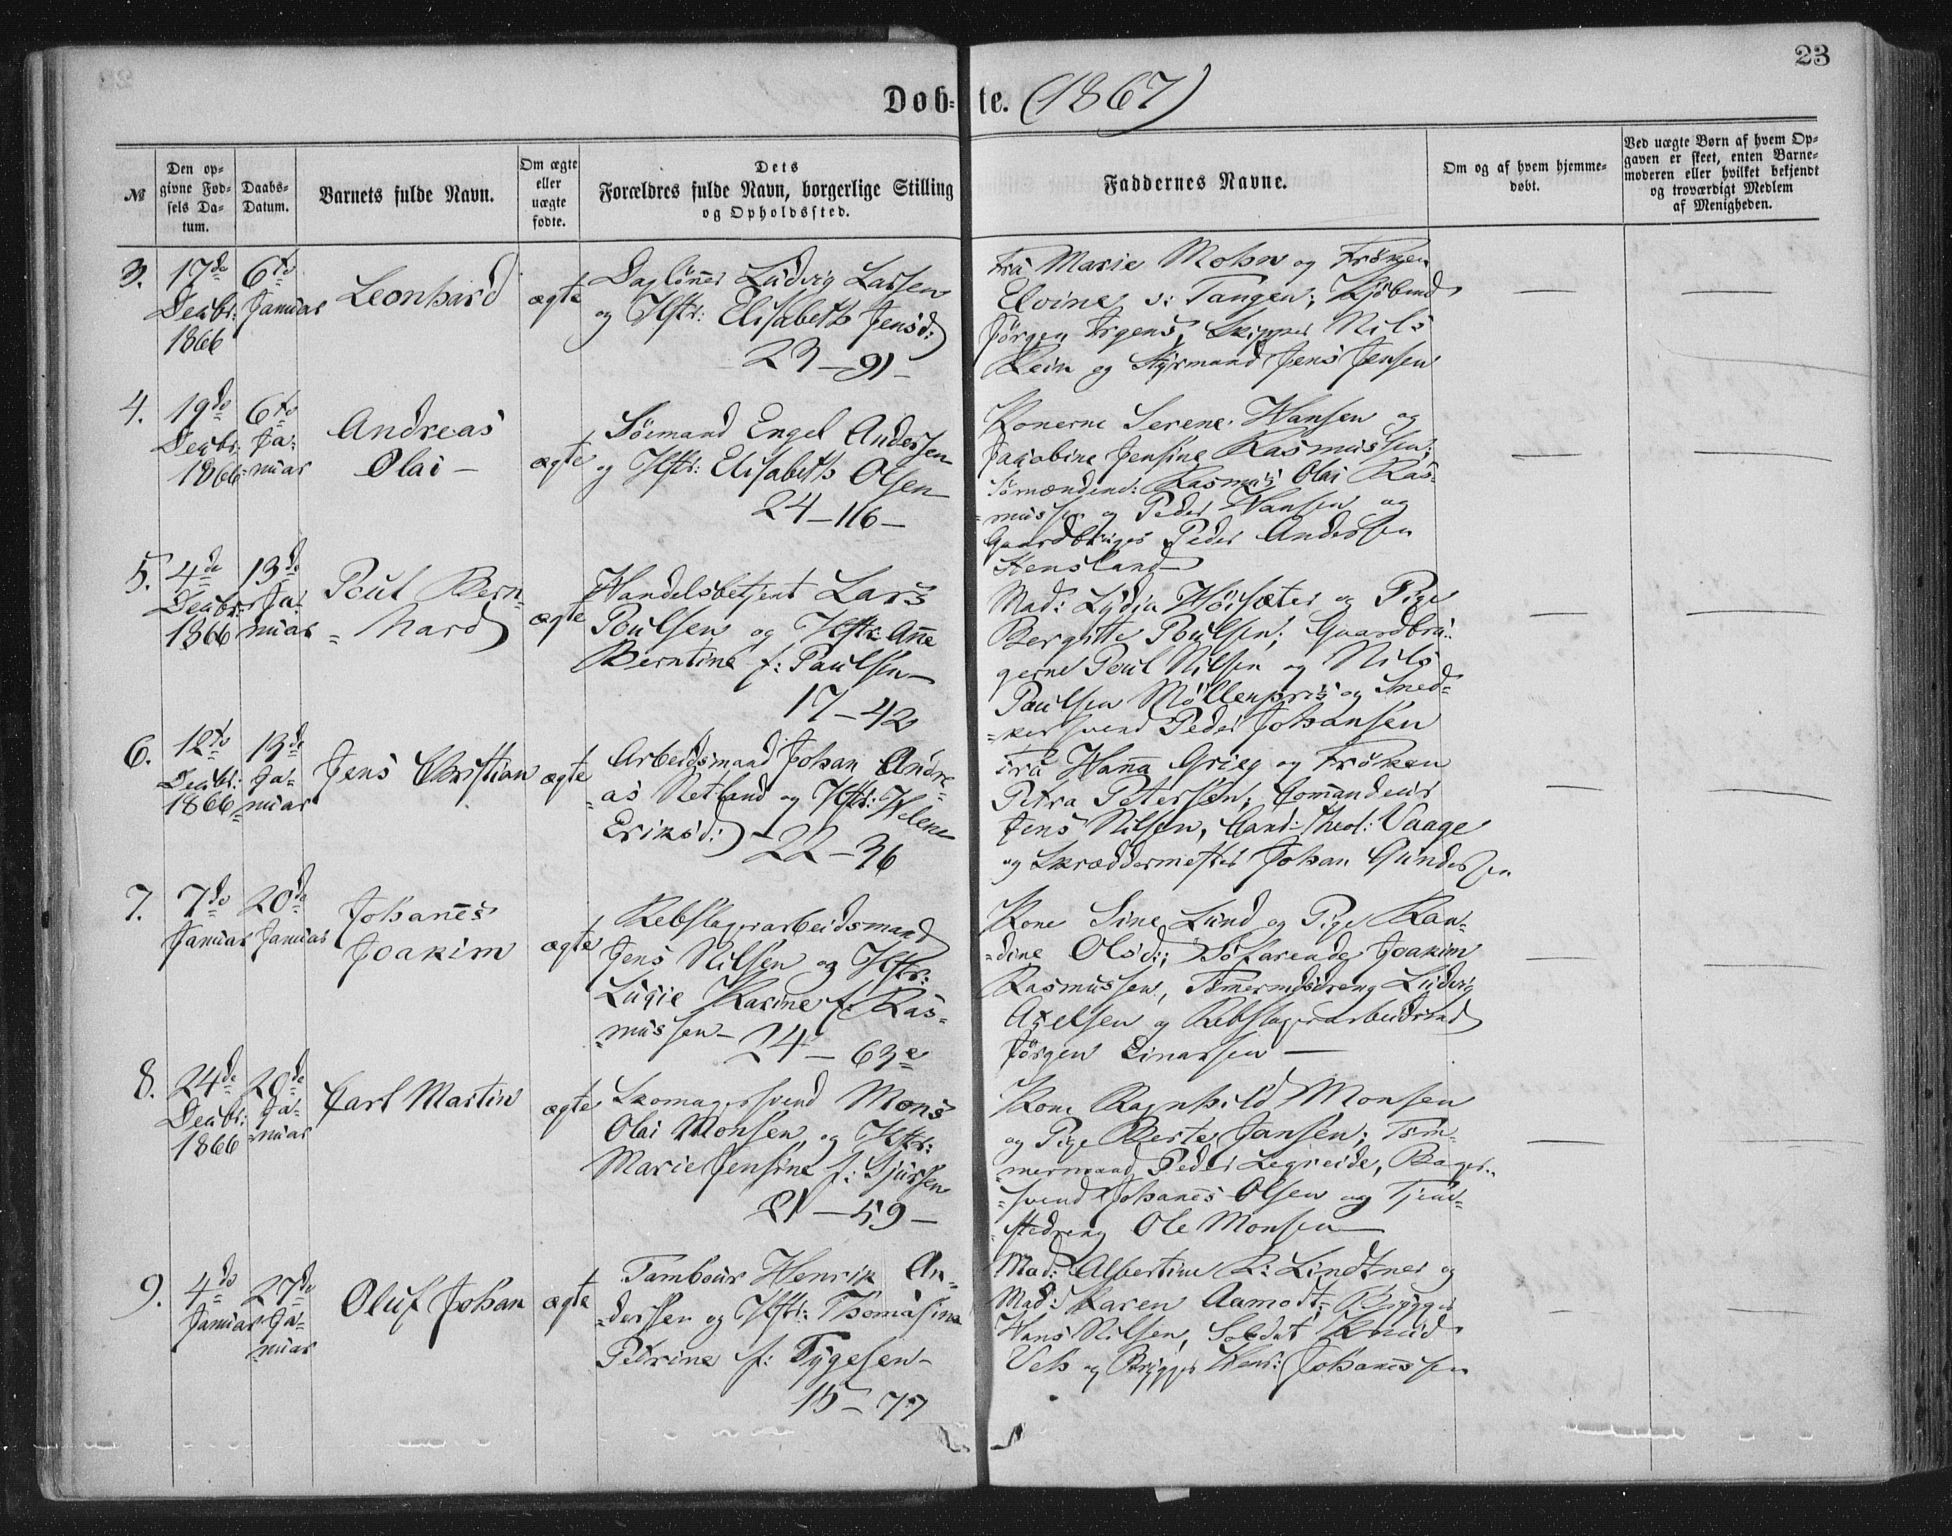 23
Døb-te. (1867)
№
Den op-
givne Fød-
sels Da-
tum.
Daabs-
Datum.
Barnets fulde Navn.
Om ægte
eller
uægte
fødte.
Dets
Forældres fulde Navn, borgerlige Stilling
og Opholdssted.
Faddernes Navne.
Om og af hvem hjemme-
døbt.
Ved uægte Børn af hvem Op-
gaven er skeet, enten Barne-
moderen eller hvilket bekjendt
og troværdigt Medlem
af Menigheden.
3.
17de
Decbr:
1866
6te
Januar
Leonhard
ægte
Daglønner Ludvig Larsen
og Hstr: Elisabeth Jensd:
23-91-
Fru Marie Mohn og Frøken
Elvine v: Tangen; Kjøbmd
Jørgen Irgens, Skipper Nils
Rein og Styrmand Jens Jensen
4.
19de
Decbr:
1866
6te
Ja-
nuar
Andreas
Olai-
ægte
Sømand Engel Andersen
og Hstr: Elisabeth Olsen
24-116-
Konerne Serene Hansen og
Jacobine Jensine Rasmussen;
Sømændene: Rasmus Olai Ras-
mussen og Peder Hansen og
Gaardbruger Peder Andersen
Hensland
5.
4de
Decbr:
1866
13de
Ja-
nuar
Poul Bern-
hard
ægte
Handelsbetjent Lars
Poulsen og Hstr: Anne
Berntine f: Paulsen-
17-42
Mad: Lydia Høisæter og Pige
Bergitte Poulsen; Gaardbru-
gerne Poul Nilsen og Nils
Paulsen Møllenpris og Sned-
kersvend Peder Johansen
6.
12te
Decbr:
1866
13de
Ja-
nuar
Jens Christian
ægte
Arbeidsmand Johan Andre-
as Netland og Hstr: Helene
Eriksd:
22-36
Fru Hanna Grieg og Frøken
Petra Petersen; Comandeur
Jens Nilsen, Cand: theol: Vaage
og Skræddermester Johan Gundersen
7.
7de
Januar
20de
Januar
Johanes
Joakim
ægte
Rebslagerarbeidsmand
Jens Nilsen og Hstr:
Lucie Karine f: Ras-
mussen-
24-63a
Kone Sine Lund og Pige Ran-
dine Olsd:; Søfarende Joakim
Rasmussen, Tømermdsdreng Ludvig
Axelsen og Rebslagerarbeidsmd
Jørgen Einarsen
8.
24de
Decbr:
1866
20de
Ja-
nuar
Carl Martin
ægte
Skomagersvend Mons
Olai Monsen og Hstr:
Marie Jensine f: Sjursen
21-59-
Kone Ragnhild Monsen
og Pige Berte Jansen; Tøm-
mermand Peder Legreide, Bager-
svend Johanes Olsen og Tjene-
stedreng Ole Monsen
9.
4de
Januar
27de
Ja-
nuar
Oluf Johan
ægte
Tambour Henrik An-
derssen og Hstr: Thomasine
Petrine f: Tygesen-
15-77
Mad: Albertine K: Lindtner og
Mad: Karen Aamodt; Brygger
Hans Nilsen, Soldat Knud
og Brygger Hend: Johanessen